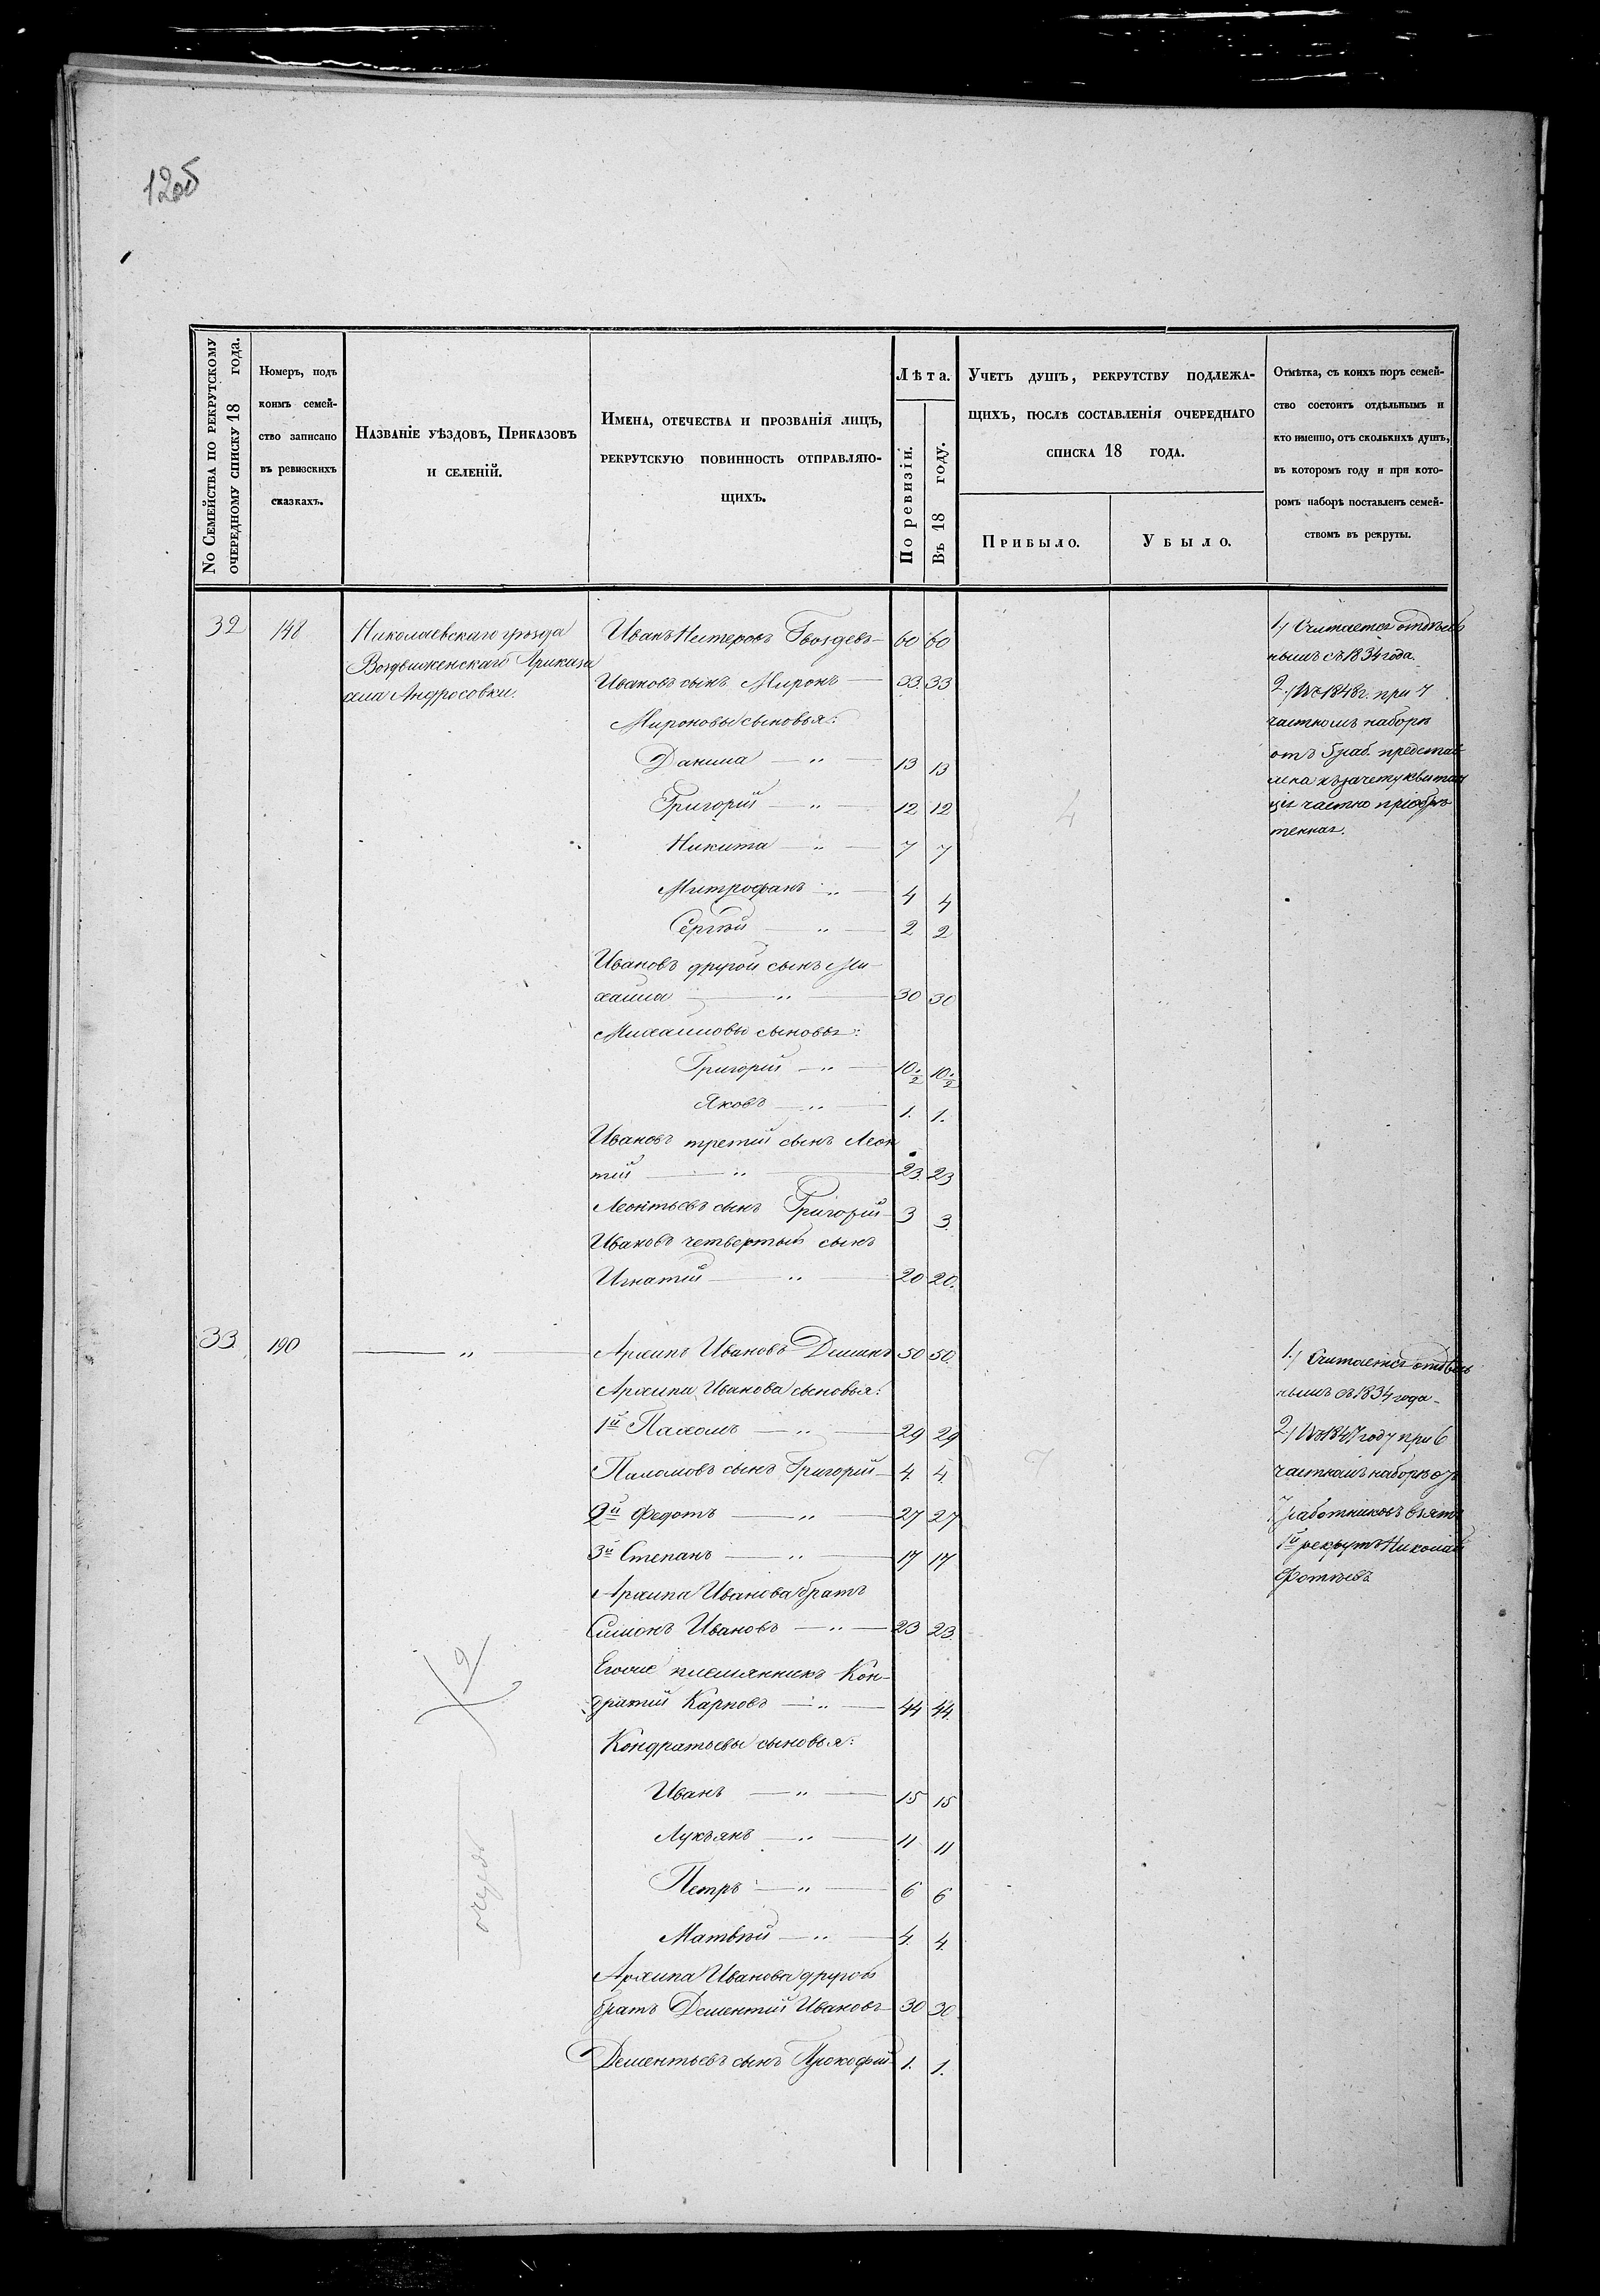 12об
№ Семейства по рекрутскому
очередному списку 18 года.
Номеръ, подъ
коимъ семей-
ство записано
въ ревизскихъ
сказкахъ.
Названіе уѣздовъ, Приказовъ
и селеній.
Имена, отечества и прозванія лицъ,
рекрутскую повинность отправляю-
щихъ.
Лѣта.
По ревизіи.
Въ 18 году.
Учетъ душъ, рекрутству подлежа-
щихъ, послѣ составленія очереднаго
списка 18 года.
Прибыло.
Убыло.
Отмѣтка, съ коихъ поръ семей-
ство состоитъ отдѣльнымъ и
кто именно, отъ сколькихъ душъ,
въ которомъ году и при кото-
ромъ наборѣ поставленъ семей-
ствомъ въ рекруты.
32 148 Николаевскаго уѣзда
Воздвиженскаго Приказа
села Андросовки.
Иванъ Нитеровъ Гвоздевъ 60 60
Ивановъ сынъ Миронъ 33 33
Мироновы сыновья:
Данила — " — 13 13
Григорій — " — 12 12
Никита — " — 7 7
Митрофанъ — " — 4 4
Сергѣй — " — 2 2
Ивановъ другой сынъ Ми-
хайла — " — 30 30
Михайловы сыновья:
Григорій — " — 10½ 10½
Яковъ — " — 1. 1.
Ивановъ третій сынъ Леон
тій — " — 23. 23
Леонтьевъ сынъ Григорій 3 3.
Ивановъ четвертый сынъ
Игнатій — " — 20 20.
4
1/ Считается отдѣль
нымъ съ 1834 года.
2./ Въ 1848 г. при 7
частномъ наборѣ
отъ 5 раб. представ
лена къ зачету квитан
ція частно пріобрѣ
тенная.
33 190 — " —
Архипъ Ивановъ Деминъ 50 50.
Архипа Иванова сыновья:
1й Пахомъ — " — 29 29
Пахомовъ сынъ Григорій 4. 4.
2й Федотъ — " — 27 27
3й Степанъ — " — 17 17
Архипа Иванова братъ
Симонъ Ивановъ — " — 23 23.
Егоже племянникъ Кон-
дратій Карповъ — " — 44 44.
Кондратьевы сыновья:
Иванъ — " — 15 15
Лукьянъ — " — 11 11
Петръ — " — 6 6
Матвѣй — " — 4. 4.
Архипа Иванова другой
братъ Дементій Ивановъ 30 30
Дементьевъ сынъ Прокофій 1. 1.
7
очередь
1./ Считается отдѣль
нымъ съ 1834 года
2./ Въ 1847 году при 6
частномъ наборѣ отъ
7 работниковъ взятъ
1й рекрутъ Николай
Фотѣевъ